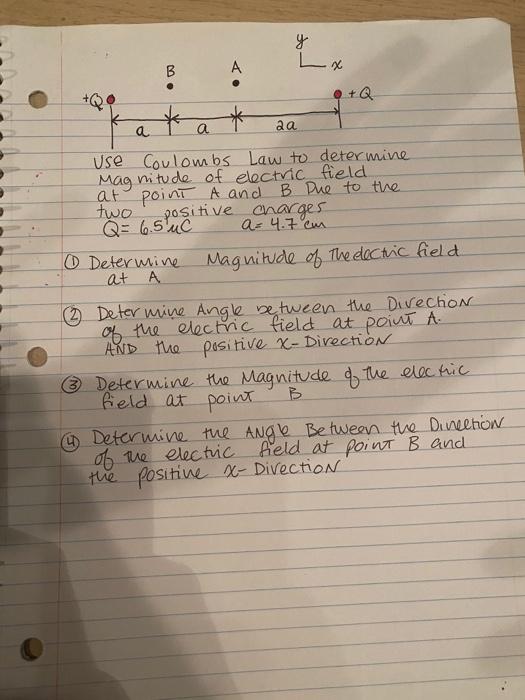 y
B A x
+Q +Q
a a 2a
Use Coulombs Law to determine
Magnitude of electric field
at point A and B Due to the
two positive charges
Q= 6.5 μC a= 4.7 cm
① Determine Magnitude of The electric field
at A
② Determine Angle between the Direction
of the electric field at point A.
AND the positive x-Direction
③ Determine the Magnitude of the electric
field at point B
④ Determine the Angle Between the Direction
of the electric field at point B and
the positive x-Direction